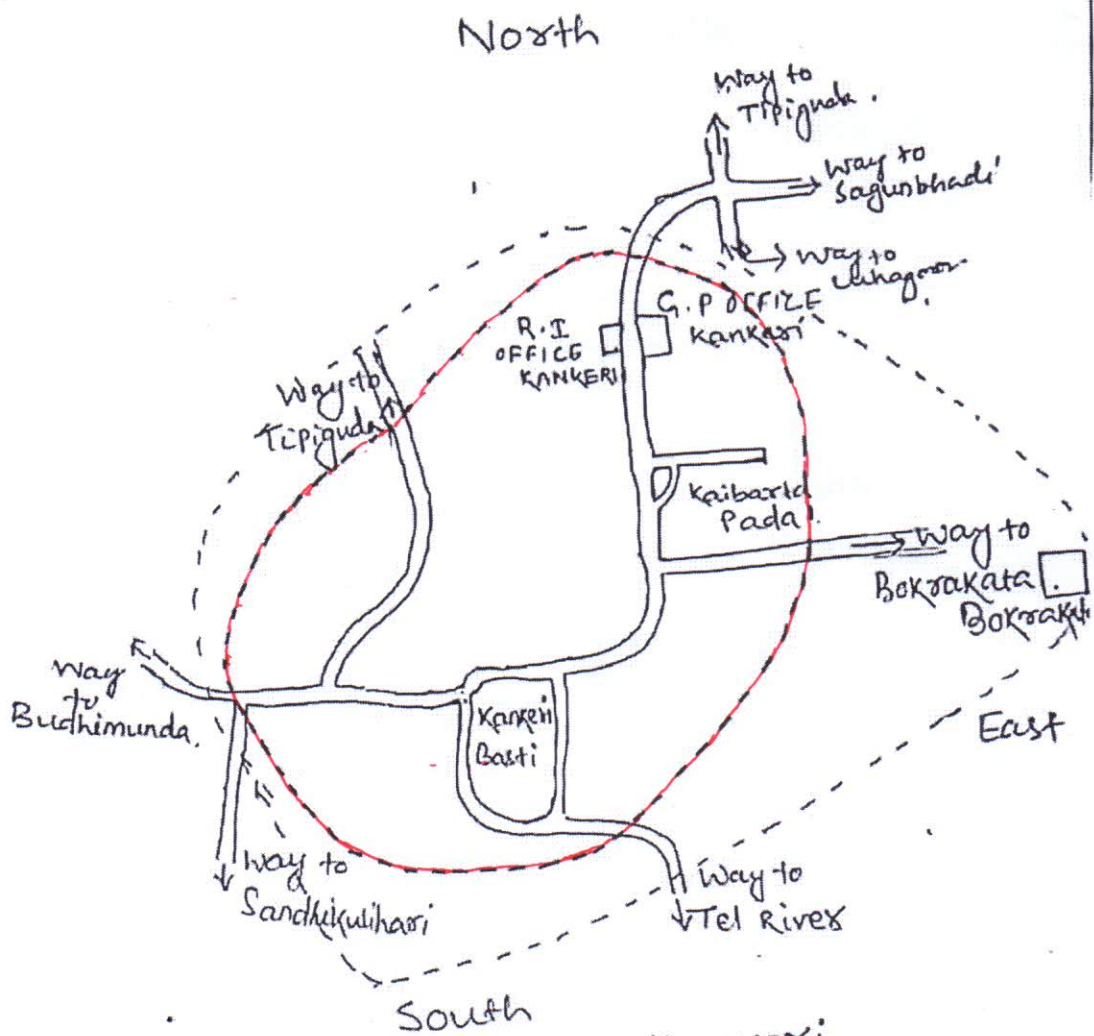 North
Way to
Tipiguda.
Way to
Sagunbhadi
Way to
G.P OFFICE
Kankari
R.I
OFFICE
KANKERI
Way to
Tipiguda
Kaibarta
Pada.
Way to
Bokrakata.
Bokrakata
Way
to
Budhimunda.
Kankeri
Basti
East
Way to
Sandhikulihari
Way to
Tel River
South